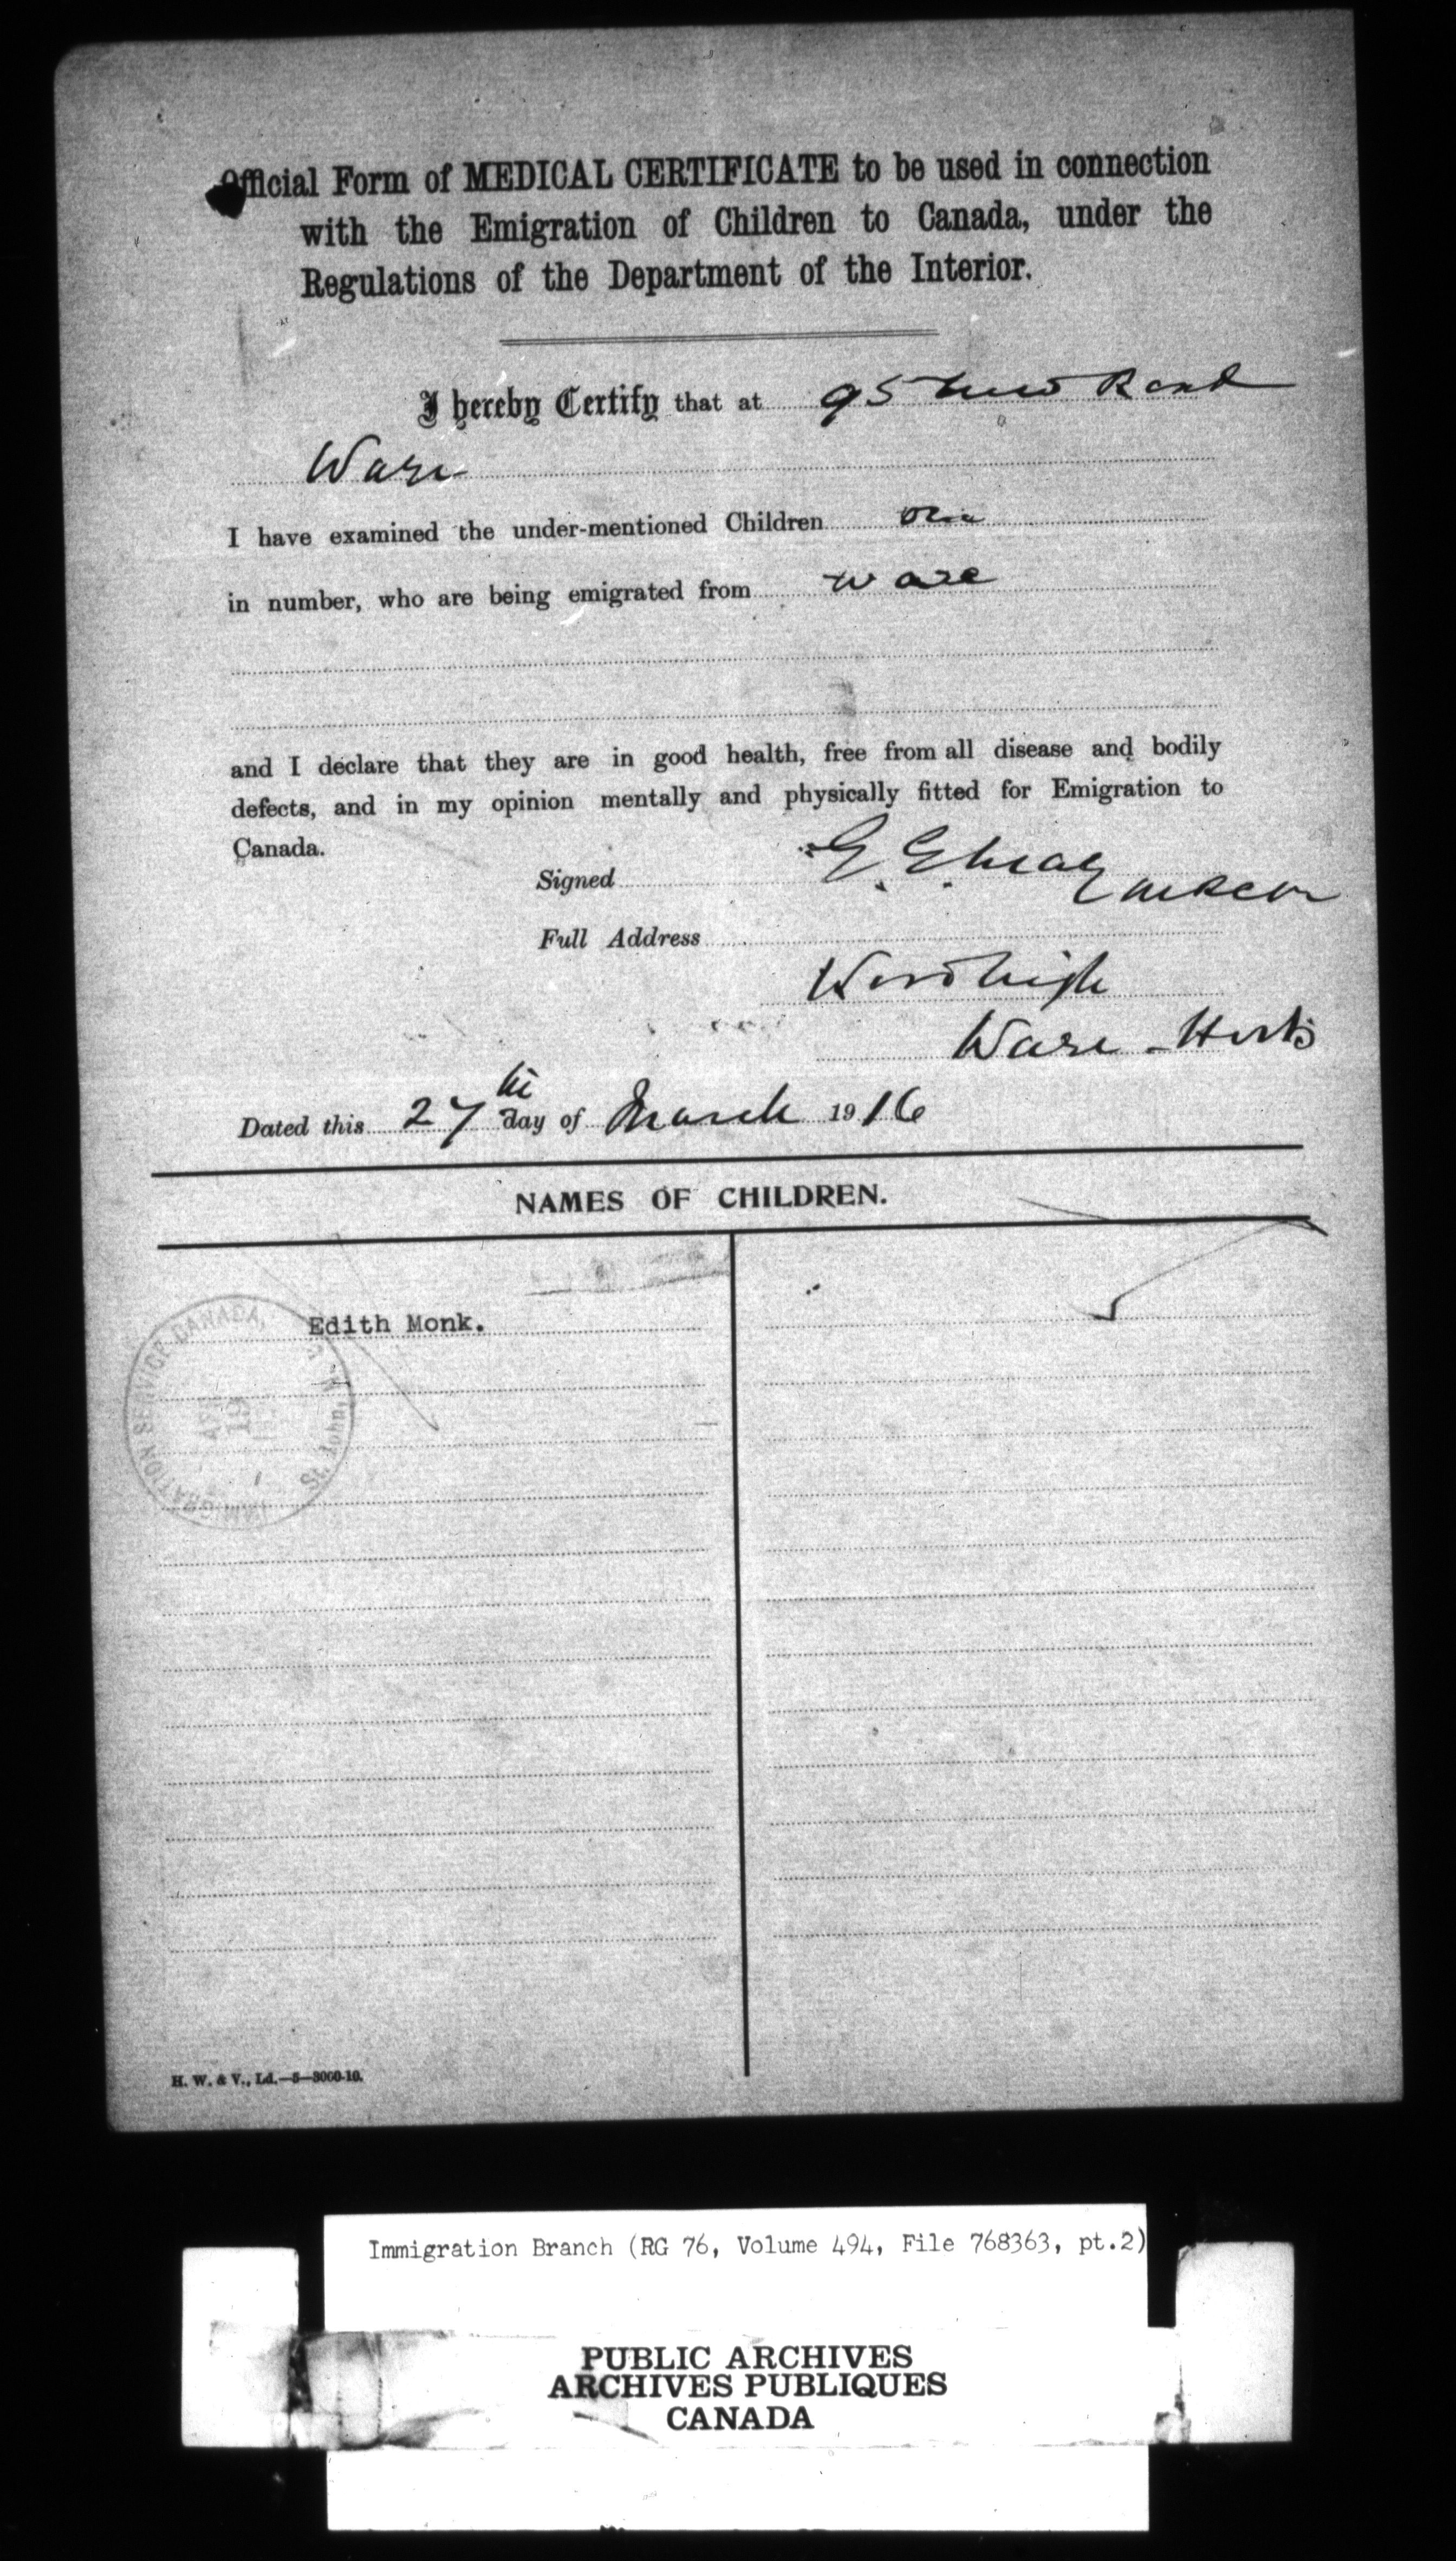 Official Form of MEDICAL CERTIFICATE to be used in connection
with the Emigration of Children to Canada, under the
Regulations of the Department of the Interior.
I hereby Certify that at 95 New Road
Ware
I have examined the under-mentioned Children one
in number, who are being emigrated from Ware
and I declare that they are in good health, free from all disease and bodily
defects, and in my opinion mentally and physically fitted for Emigration to
Canada.
Signed E. G.
Full Address
Ware - Herts
Dated this 27th day of March 1916
NAMES OF CHILDREN.
Edith Monk.
IMMIGRATION SERVICE CANADA,
St. John, N.
H. W. & V., Ld.—5—3000-10.
Immigration Branch (RG 76, Volume 494, File 768363, pt.2)
PUBLIC ARCHIVES
ARCHIVES PUBLIQUES
CANADA